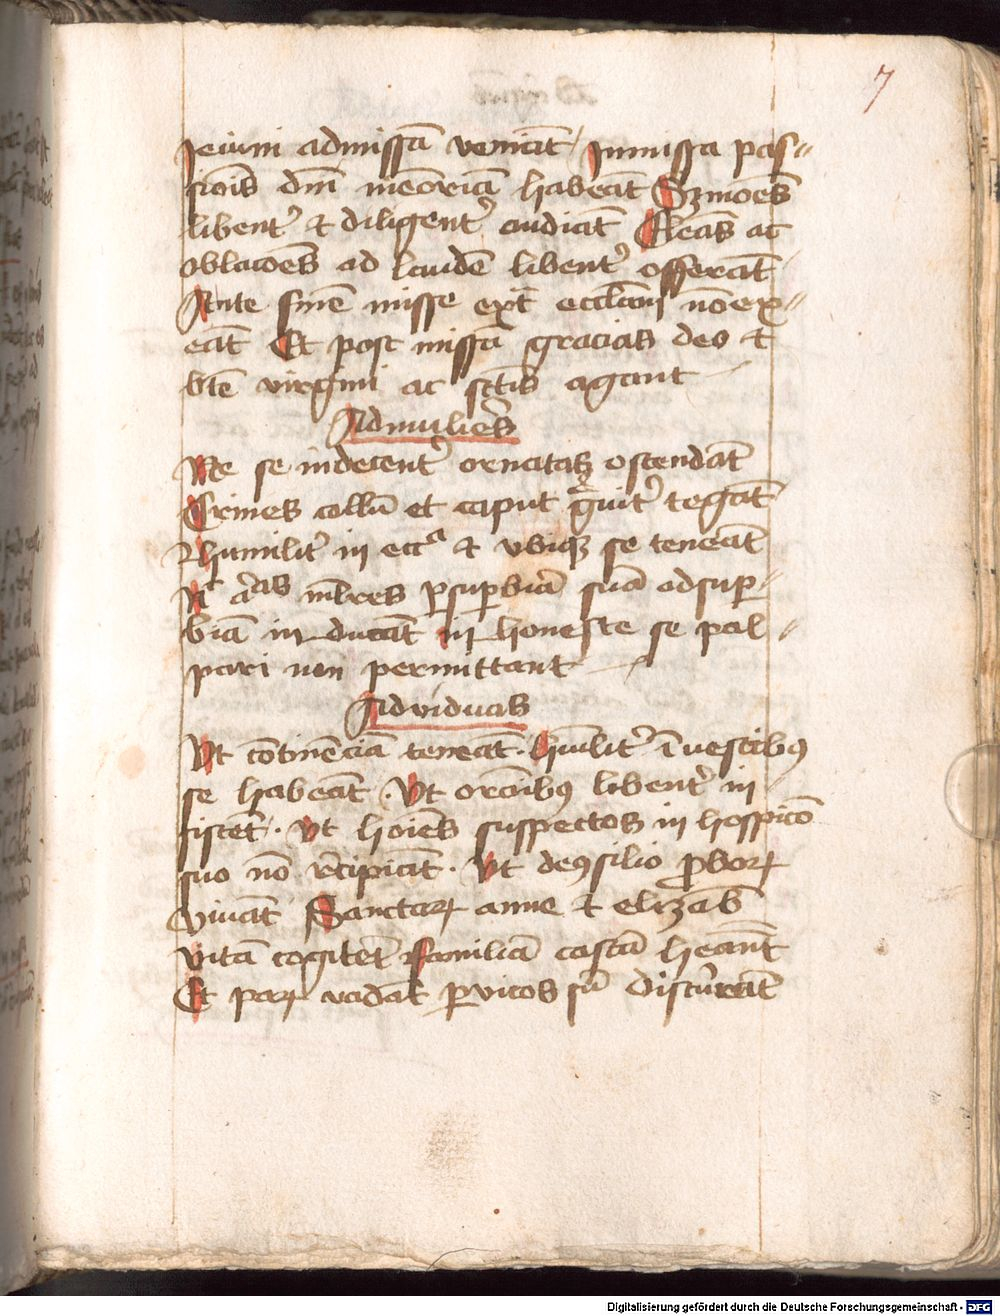 7
Jeiuni admissā veniāt Jnmissa pas=
siōis dm̄ meoriā habeāt Szmōes
libent᷒ ⁊ diligent᷒ audiāt Eleās ac
oblacōes ad laudē libent᷒ offerāt
Ante finē misse ext̄ eccliam nō ex=
eāt Et post missā gracias deo ⁊
btē virgini ac sctīs agant
Admulieres
Ne se indecent᷒ ornatas ostendāt
Crines collū et caput g̊uit᷒ tegāt
humilit᷒ in ecc̄a ⁊ vbiqꝫ se teneāt
Nᶜ a̔as mlr̄es ꝑsuꝑbiā suā adsuꝑ=
biā inducāt inhoneste se pal=
pari non permittant
Adviduas
Vt cōtinēciā teneāt. Humilit᷒ ī vestibꝰ
se habeāt Vt orcōibꝰ libent᷒ in
sistēt. Vt hoīes suspectos in hospicō
suo nō recipiāt. Vt de ꝯsilio ꝓborꝝ
viuāt Sanctarꝝ anne ⁊ elizab̄
vitā cogitēt Familiā castā heānt
Et parꝝ vadāt ꝑ vicos sū discurrāt
Digitalisierung gefördert durch die Deutsche Forschungsgemeinschaft - DFG